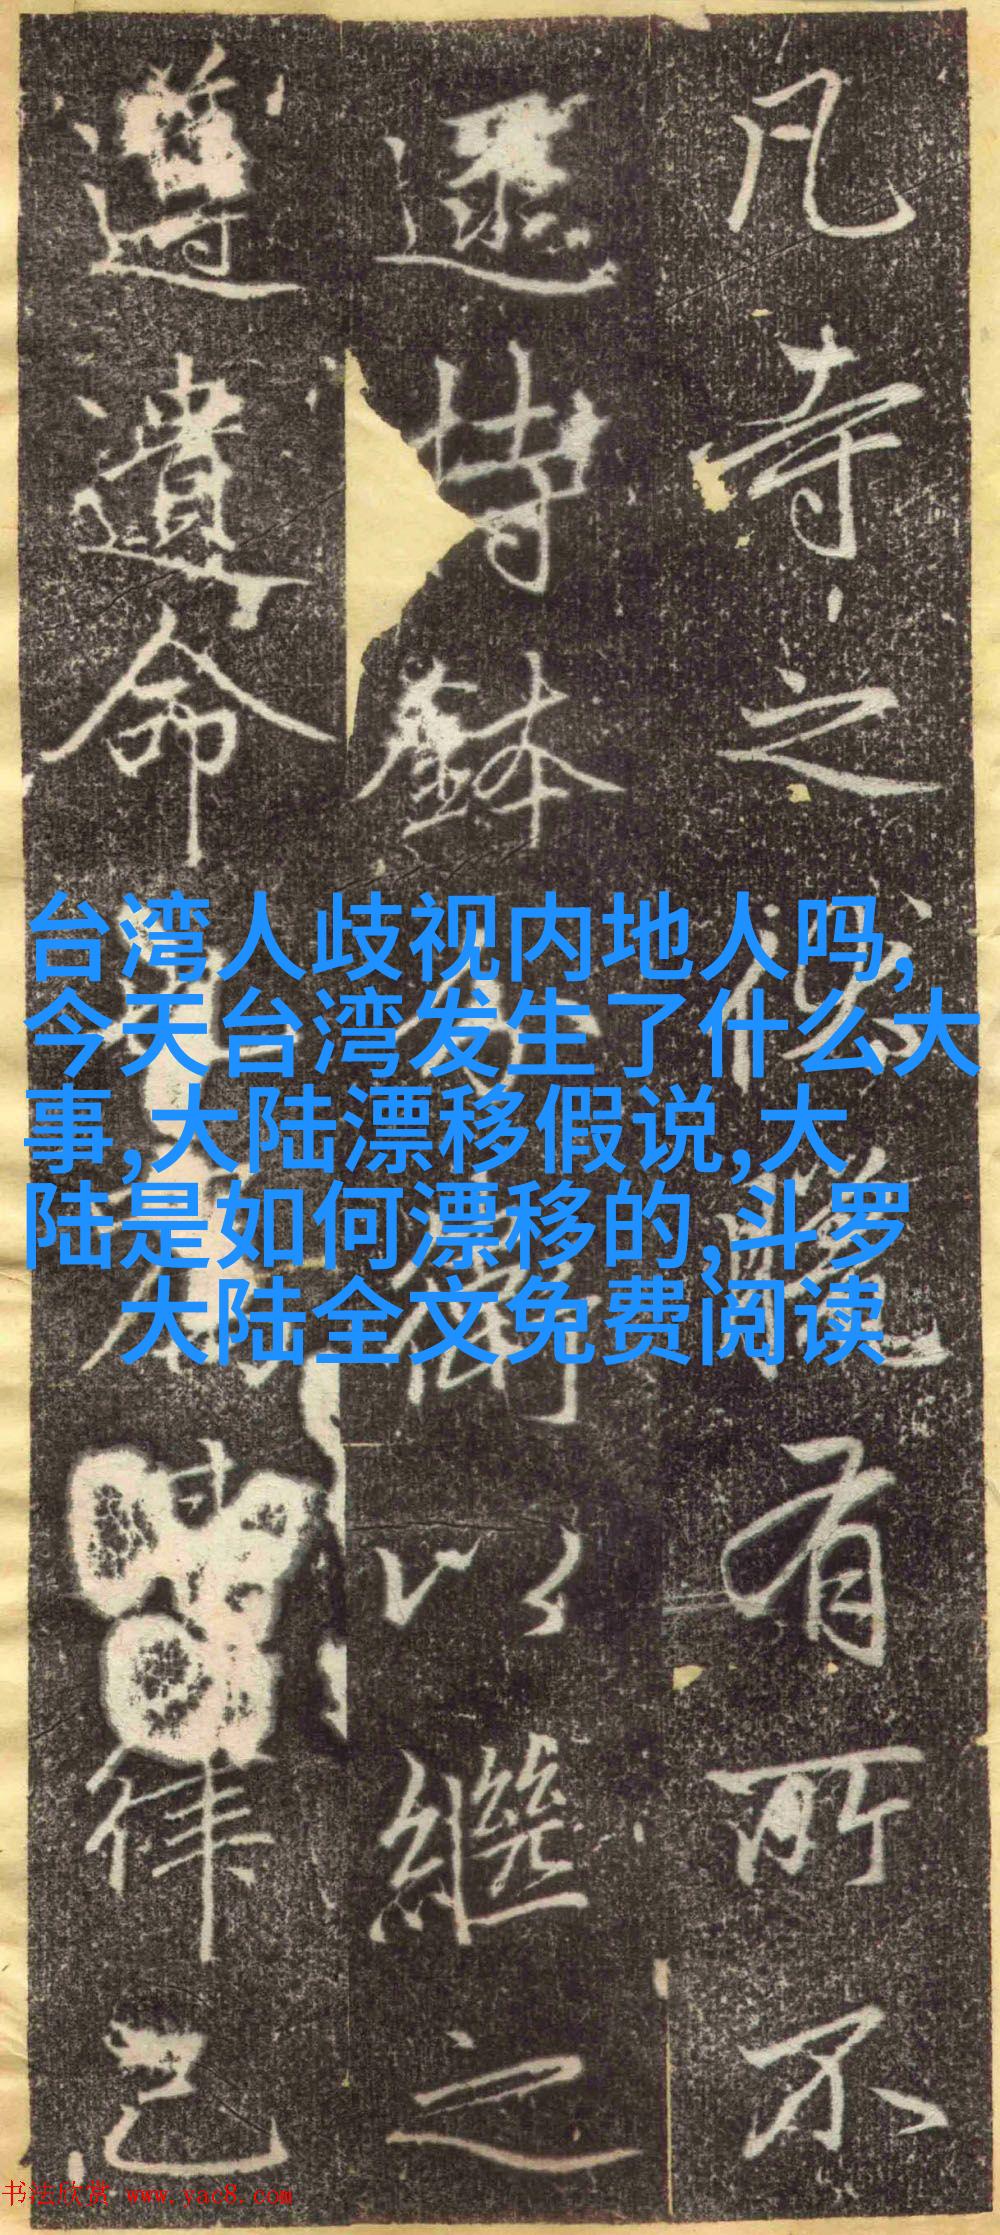 凡寺之有所不
持鉢以繼之
遵遺命律己
台湾人歧视内地人吗,
今天台湾发生了什么大
事,大陆漂移假说,大
陆是如何漂移的,斗罗
大陆全文免费阅读
书法欣赏 www.yac8.com